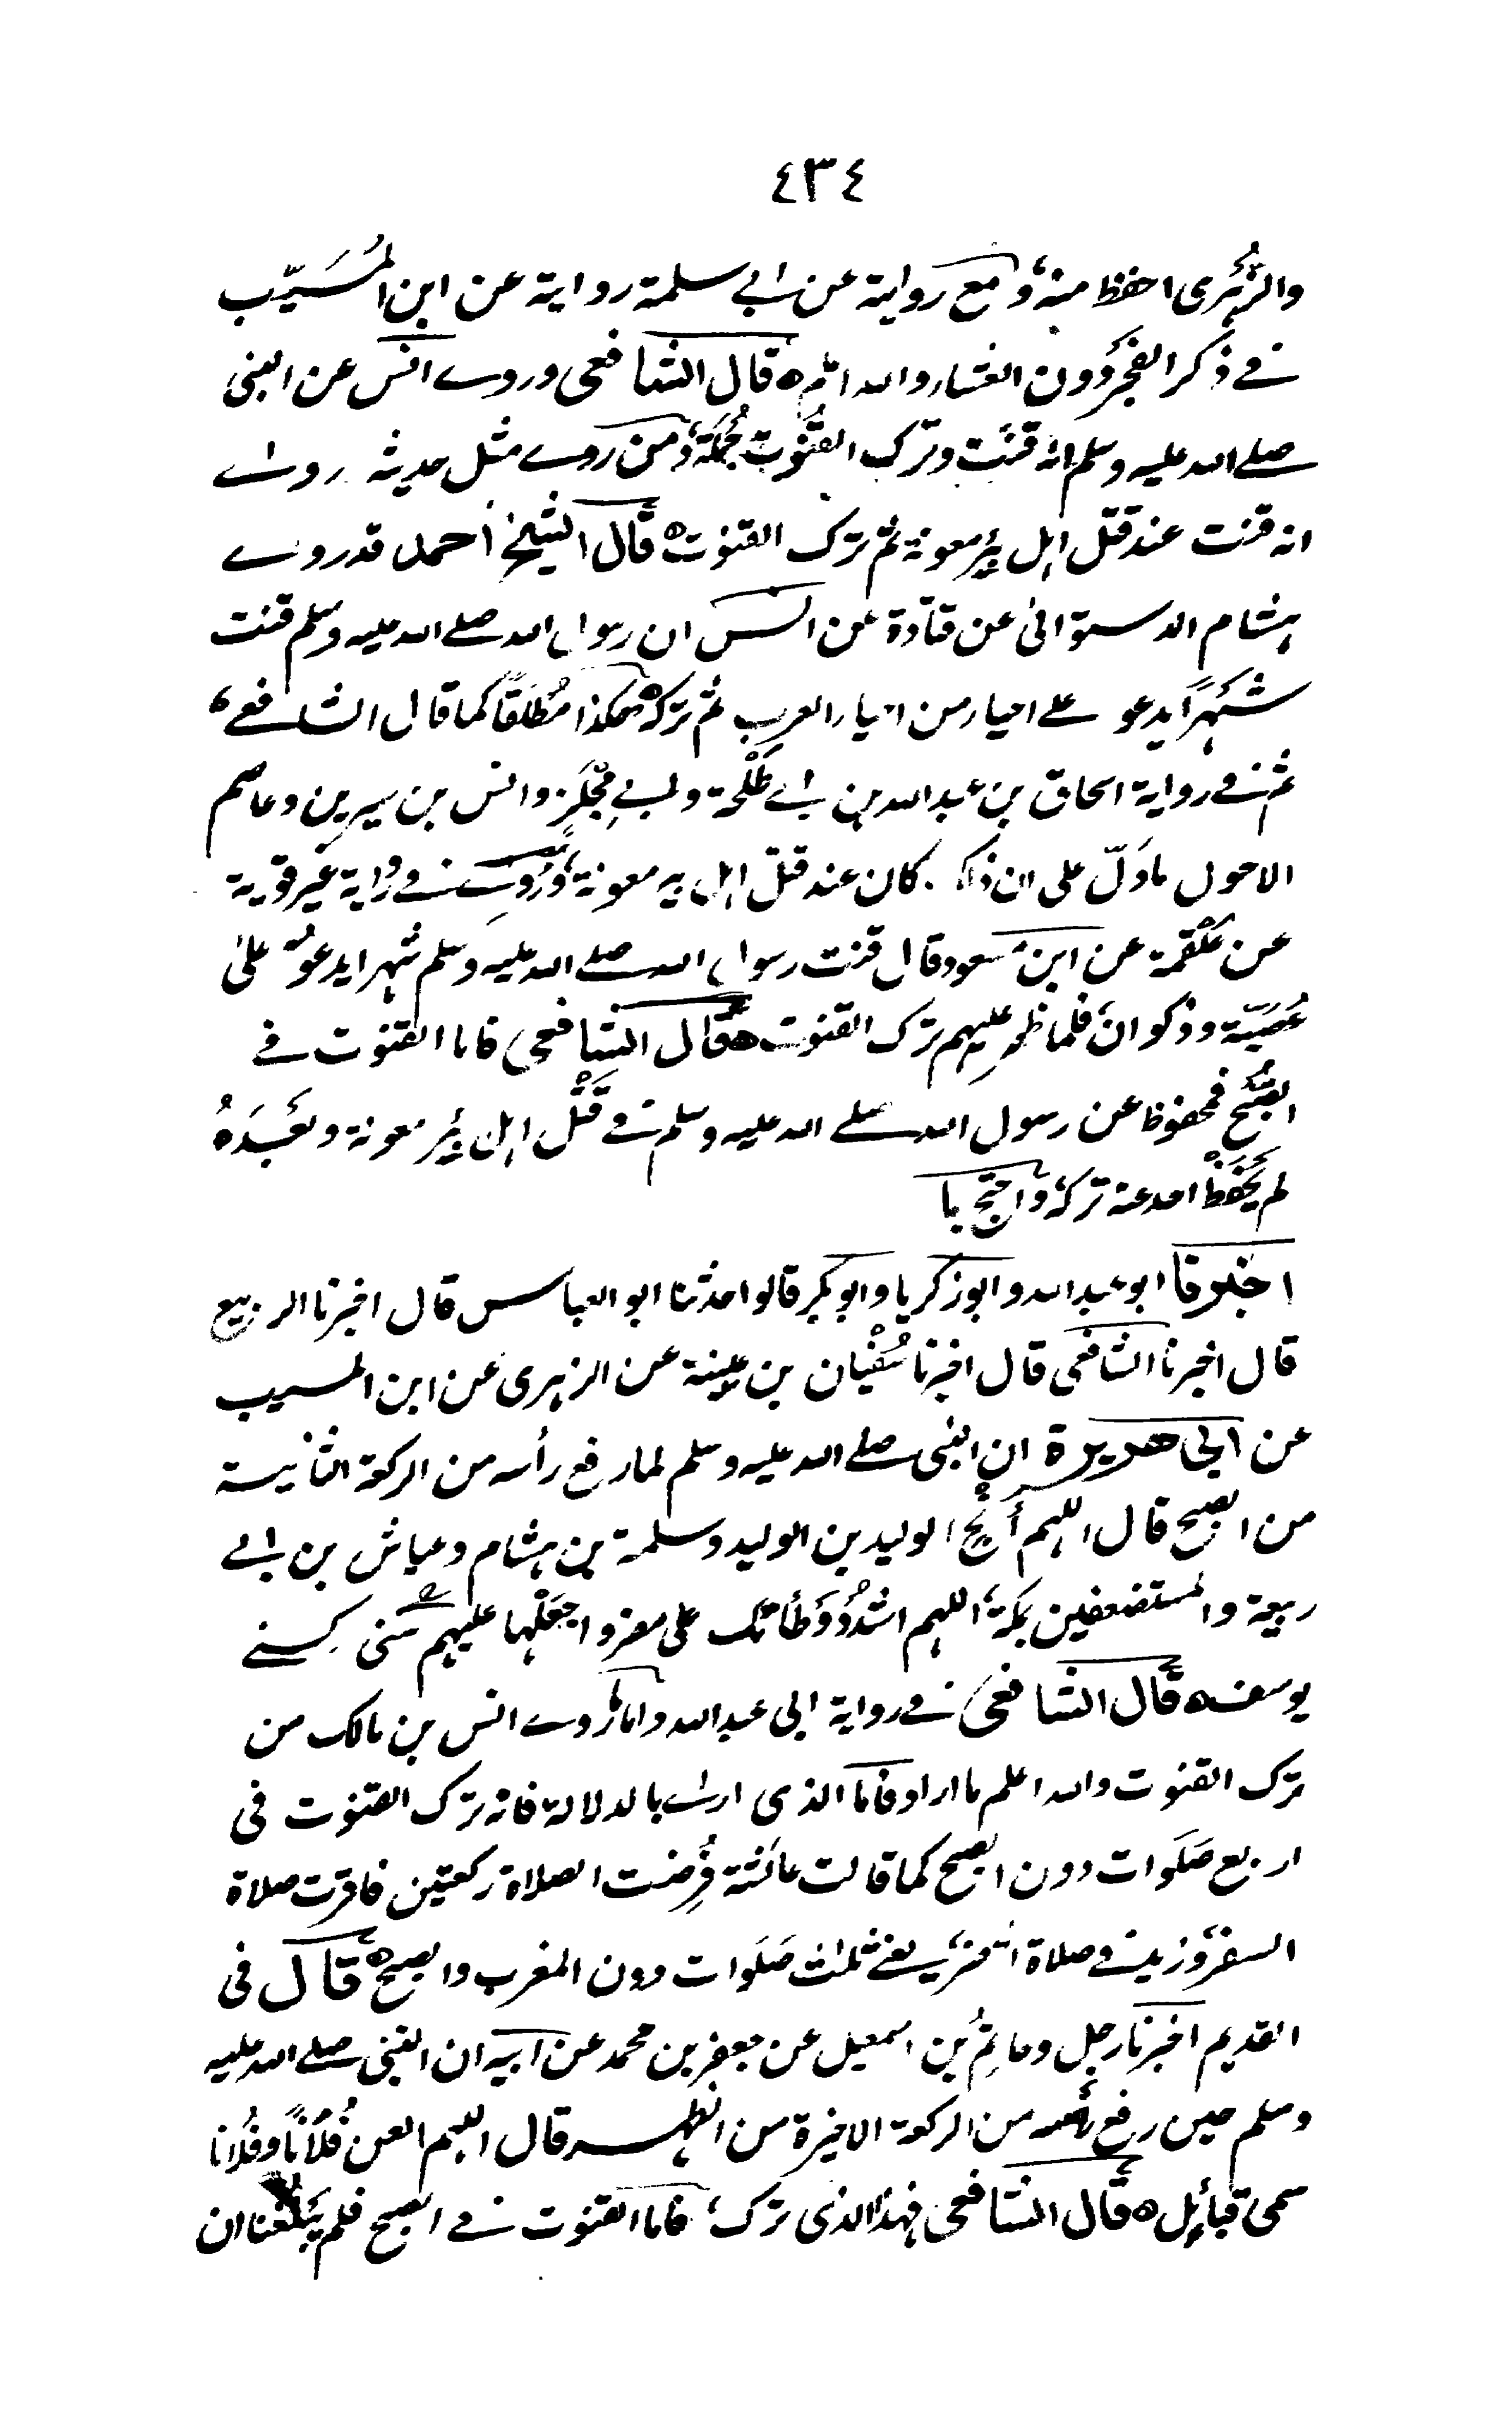 ٤٣٤
والزُّهْرى احفظ منه، ومع رواية عن ابى سلمة رواية عن ابن المُسَيّب
فے ذكر الفجر دون العشاء والله اعلم ه قال الشافعى وروے انس عن النبى
صلے الله عليه وسلم انه قَنَت وترك القُنُوت جُملَة، ومن روے مثل حديثه روے
انه قنت عند قتل اهل بئر معونة ثم ترك القنوت ه قال الشيخ أحمد قد روے
هشام الدستوائى عن قتادة عن انس ان رسول الله صلے الله عليه وسلم قنت
شَهْرًا يدعو علے احياء من احياء العرب ثم تركه ه هكذا مُطْلَقًا كما قال الشافعے،
ثم فے رواية اسحاق بن عبد الله بن ابے طَلْحة وابے مِجْلَز وانس بن سيرين وعاصم
الاحول ما دَلّ على ان ذلك كان عند قتل اهل بير معونة، ورُوِے فے رواية غير قوية
عن عَلْقمة عن ابن مسعود قال قنت رسول الله صلے الله عليه وسلم شهرا يدعوُ علىٰ
عُصَيّة وذكوان، فلما ظهر عليهم ترك القنوت ه قال الشافعى فاما القنوت فے
الصُّبْح فمحفوظ عن رسول الله صلے الله عليه وسلم فے قَتْل اهل بئر معونة وبَعْدَهُ
لم يَحْفَظْ احد عنه تركه، واحتج بما
اخبرنا ابو عبد الله وابو زكريا وابو بكر قالوا حدثنا ابو العباس قال اخبرنا الربيع
قال اخبرنا الشافعى قال اخبرنا سُفْيان بن عيينة عن الزهرى عن ابن المسيب
عن ابى هريرة ان النبى صلے الله عليه وسلم لما رفع رأسه من الركعة الثانية
من الصبح قال اللهم أَنْجِ الوليد بن الوليد وسلمة بن هشام وعياش بن ابے
ربيعة والمستضعفين بمكة، اللهم اشْدُدْ وَطْأَتك على مضر واجعَلْها عليهم سنى كسنے
يوسف ه قال الشافعى فے رواية ابى عبد الله واما ما روے انس بن مالك من
ترك القنوت والله اعلم ما اراد فاما الذى ارے بالدلالة فانه ترك القنوت فى
اربع صَلَوات دون الصبح كما قالت عائشة فُرِضت الصلاة ركعتين فاقرت صلاة
السفر، وزيد فے صلاة الحضر، يعنے ثلث صَلَوات دون المغرب والصبح ه قال فى
القديم اخبرنا رجل وحاتِمُ بن اسمعيل عن جعفر بن محمد عن ابيه ان النبى صلے الله عليه
وسلم حين رفع رأسه من الركعة الاخيرة من الظهر قال اللهم العن فُلَانًا وفُلانا
سمى قبائل ه قال الشافعى فهذا الذى ترك، فاما القنوت فے الصبح فلم يَبْلُغنا ان